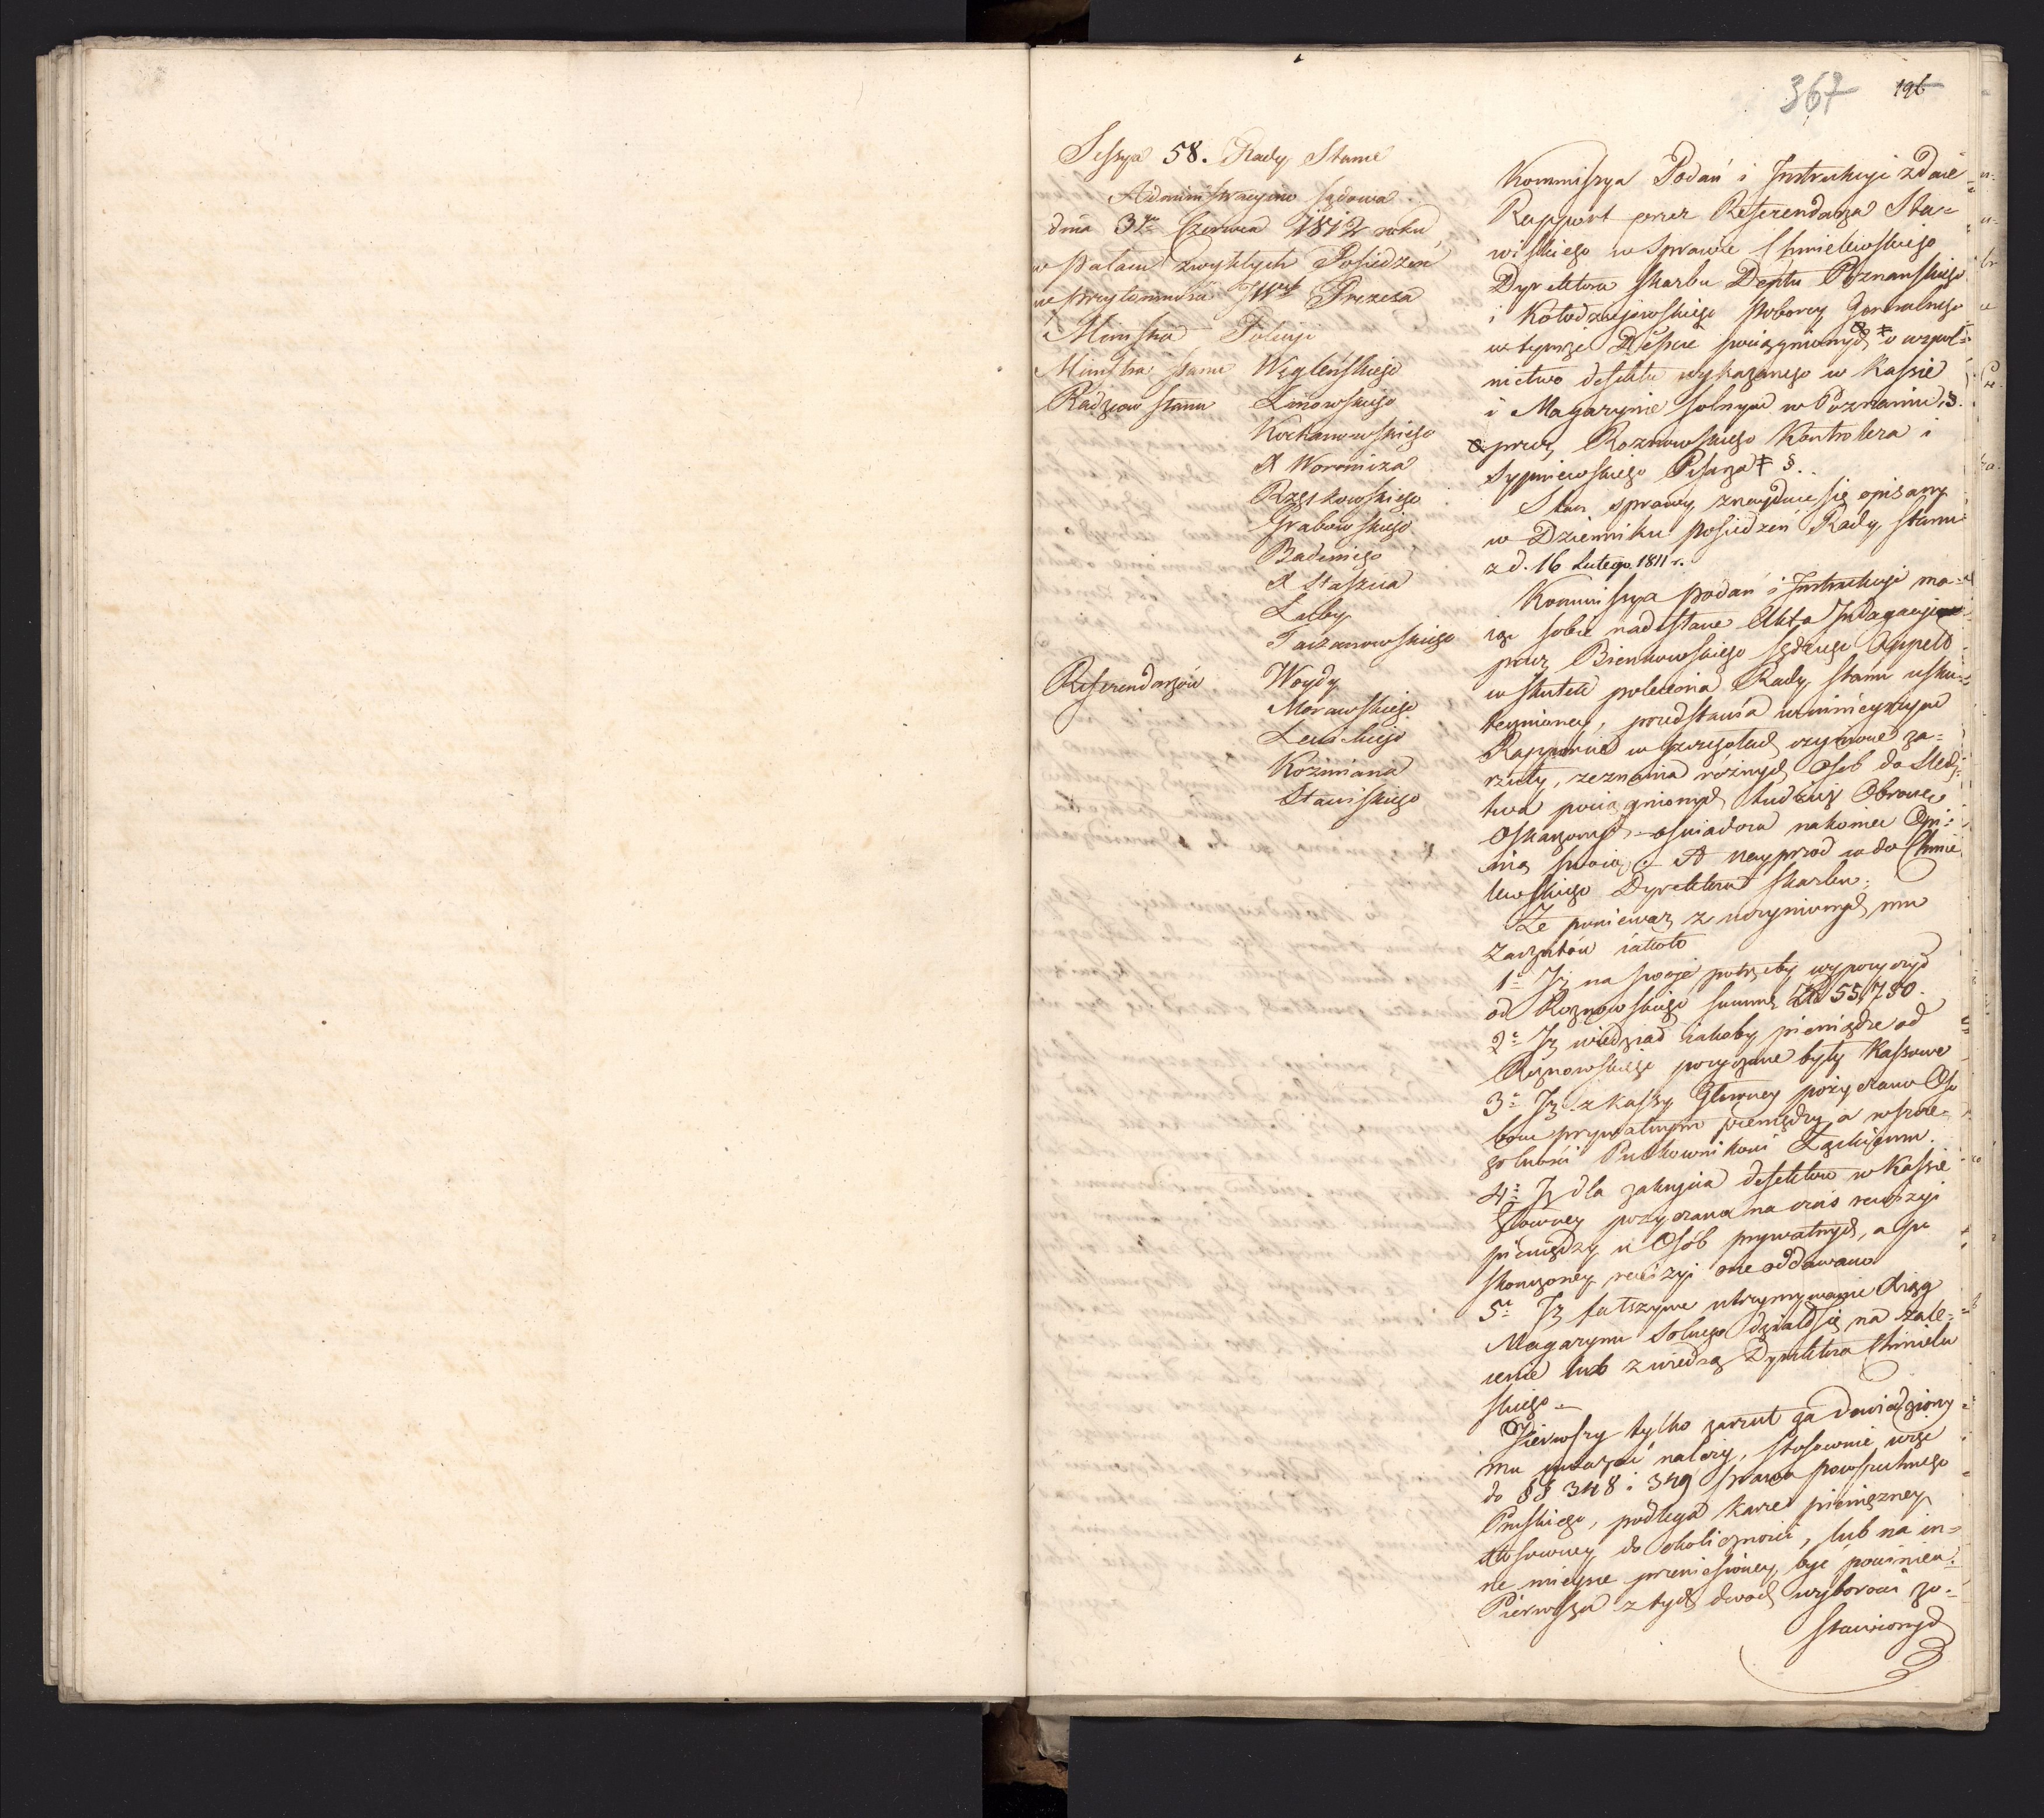 367 196
Sessya 58. Rady Stanu
Administracyino sądowa
dnia 3go Czerwca 1812 roku
w Pałacu zwykłych Posiedzeń
w przytomności JW Prezesa
Ministra Policyi
Ministra Stanu Węgleńskiego
Radzców Stanu Linowskiego
Kochanowskiego
X Woronicza
Rzętkowskiego
Grabowskiego
Badeniego
X Staszica
Lalby
Tarzanowskiego
Referendarzów Woydy
Morawskiego
Lewickiego
Koźmiana
Stawiskiego
Kommissya Podań i Instrukcyi zdaie
Rapport przez Referendarza Sta-
wiskiego w Sprawie Chmielewskiego
Dyrektora Skarbu Deptu Poznańskiego
i Kołodziejowskiego Poborcy Generalnego
w tymże Depcie pociągnionych o wspol-
nictwo defektu wykazanego w Kassie
i Magazynie Solnym w Poznaniu §.
przez Roznowskiego Kontrolera i
Sypniewskiego Pisarza ‡ §.
Stan sprawy znayduie się opisany
w Dzienniku posiedzeń Rady Stanu
z d. 16 Lutego 1811 r.
Kommissya podań i Instrukcyi ma-
iąc sobie nadesłane Akta Indagacyi
przez Bienkowskiego Sędziego Appell
w skutek polecenia Rady Stanu usku-
tecznioney, przedstawia w ninieyszym
Rapporcie w szczegółach czynione za-
rzuty, zeznania różnych Osób do Sledz-
twa pociągnionych tudzież Obronę
Oskarżonych oświadcza nakoniec Opi-
nią swoią: A nayprzod co do Chmie
lewskiego Dyrektora Skarbu:
Że ponieważ z uczynionych mu
Zarzutów iakoto
1o Iż na swoje potrzeby wypożyczył
od Roznowskiego summę Zł 55,780.
2o Iż wiedział iakoby pieniądze od
Roznowskiego pożyczane były Kassowe
3o Iż z kassy Główney pożyczano Oso
bom prywatnym pieniędzy a w szcze-
gólności Pułkownikowi Łąckiemu.
4o Iż dla zakrycia defektów w Kassie
Główney pożyczano na czas rewizyi
pieniędzy u Osób prywatnych, a po
skonczoney rewizyi one oddawano
5o Iż fałszywe utrzymywanie Xiąg
Magazynu Solnego działo się na zale-
cenie lub z wiedzą Dyrektora Chmielew
skiego.
Pierwszy tylko zarzut za dowiedziony
mu uważać należy, stosownie więc
do §§ 348 i 349 prawa powszechnego
Pruskiego, podlega karze pieniężney
stosowney do okoliczności, lub na in-
ne mieysce przeniesiony być powinien.
Pierwsza z tych dwoch wyborowi zo-
stawionych